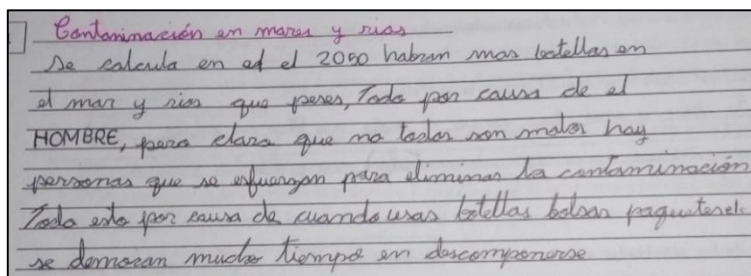 Contaminación en mares y rios
Se calcula en ed el 2050 habran mas botellas en
el mar y rios que peses, Todo por causa de el
HOMBRE, pero claro que no todos son malos hay
personas que se esfuerzan para eliminar la contaminación
Todo esto por causa de cuando usas botellas bolsas
se demoran mucho tiempo en descomponerse